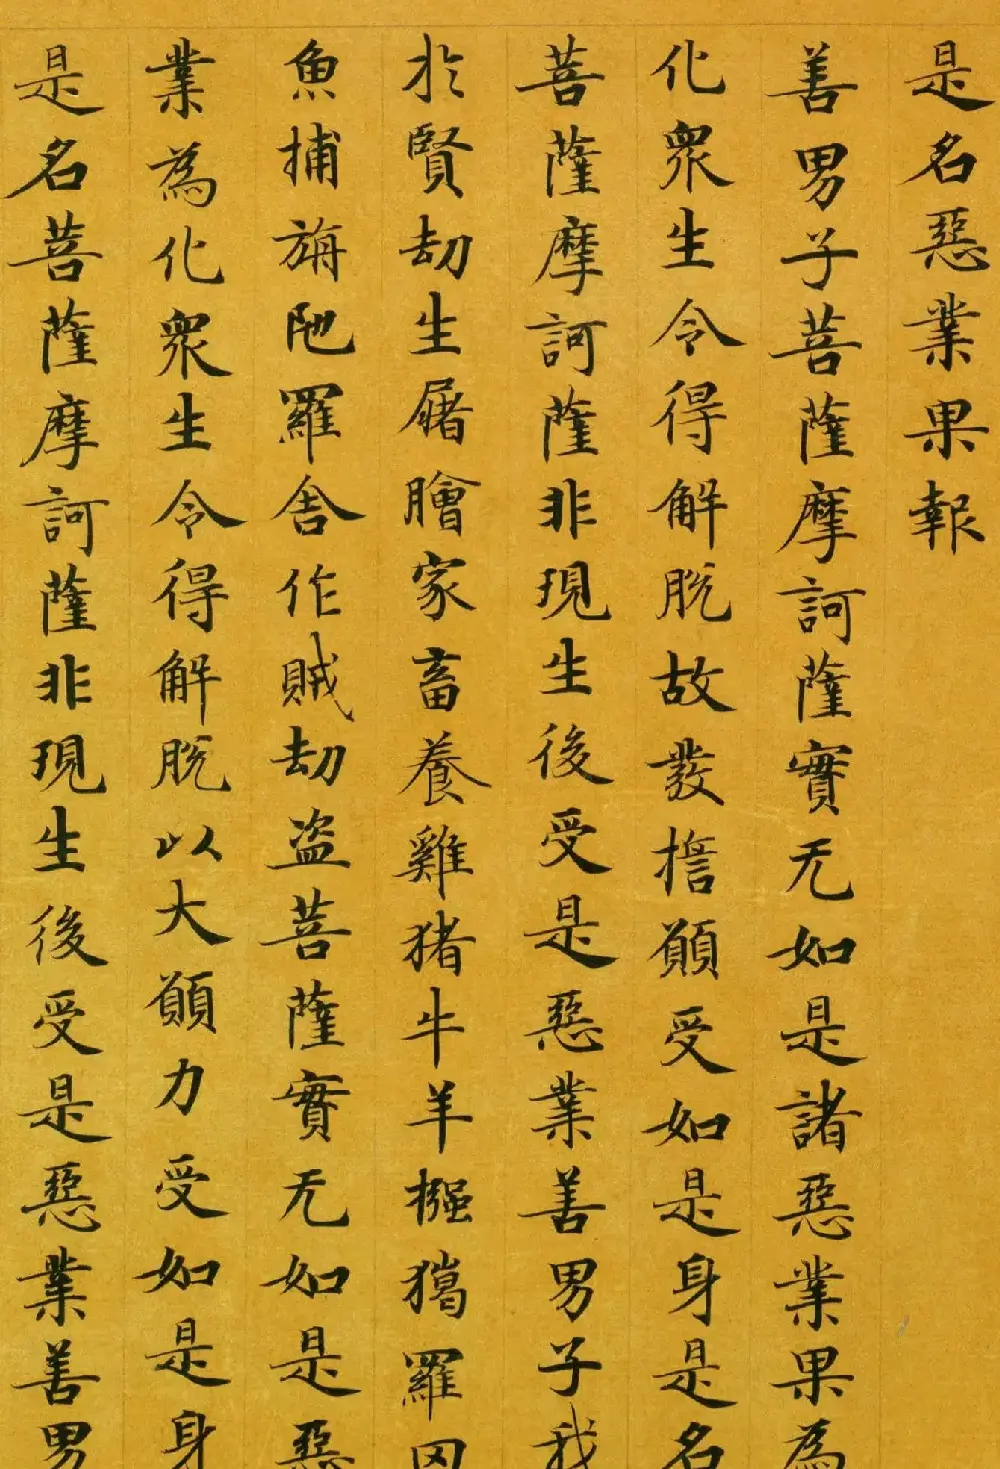 是名惡業果報
善男子菩薩摩訶薩實无如是諸惡業果為
化衆生令得解脫故發擔願受如是身是名
菩薩摩訶薩非現生後受是惡業善男子我
於賢劫生屠膾家畜養雞猪牛羊獵罗罔
魚捕旃陁羅舍作賊劫盗菩薩實无如是惡
業為化衆生令得解脫以大願力受如是身
是名菩薩摩訶薩非現生後受是惡業善男